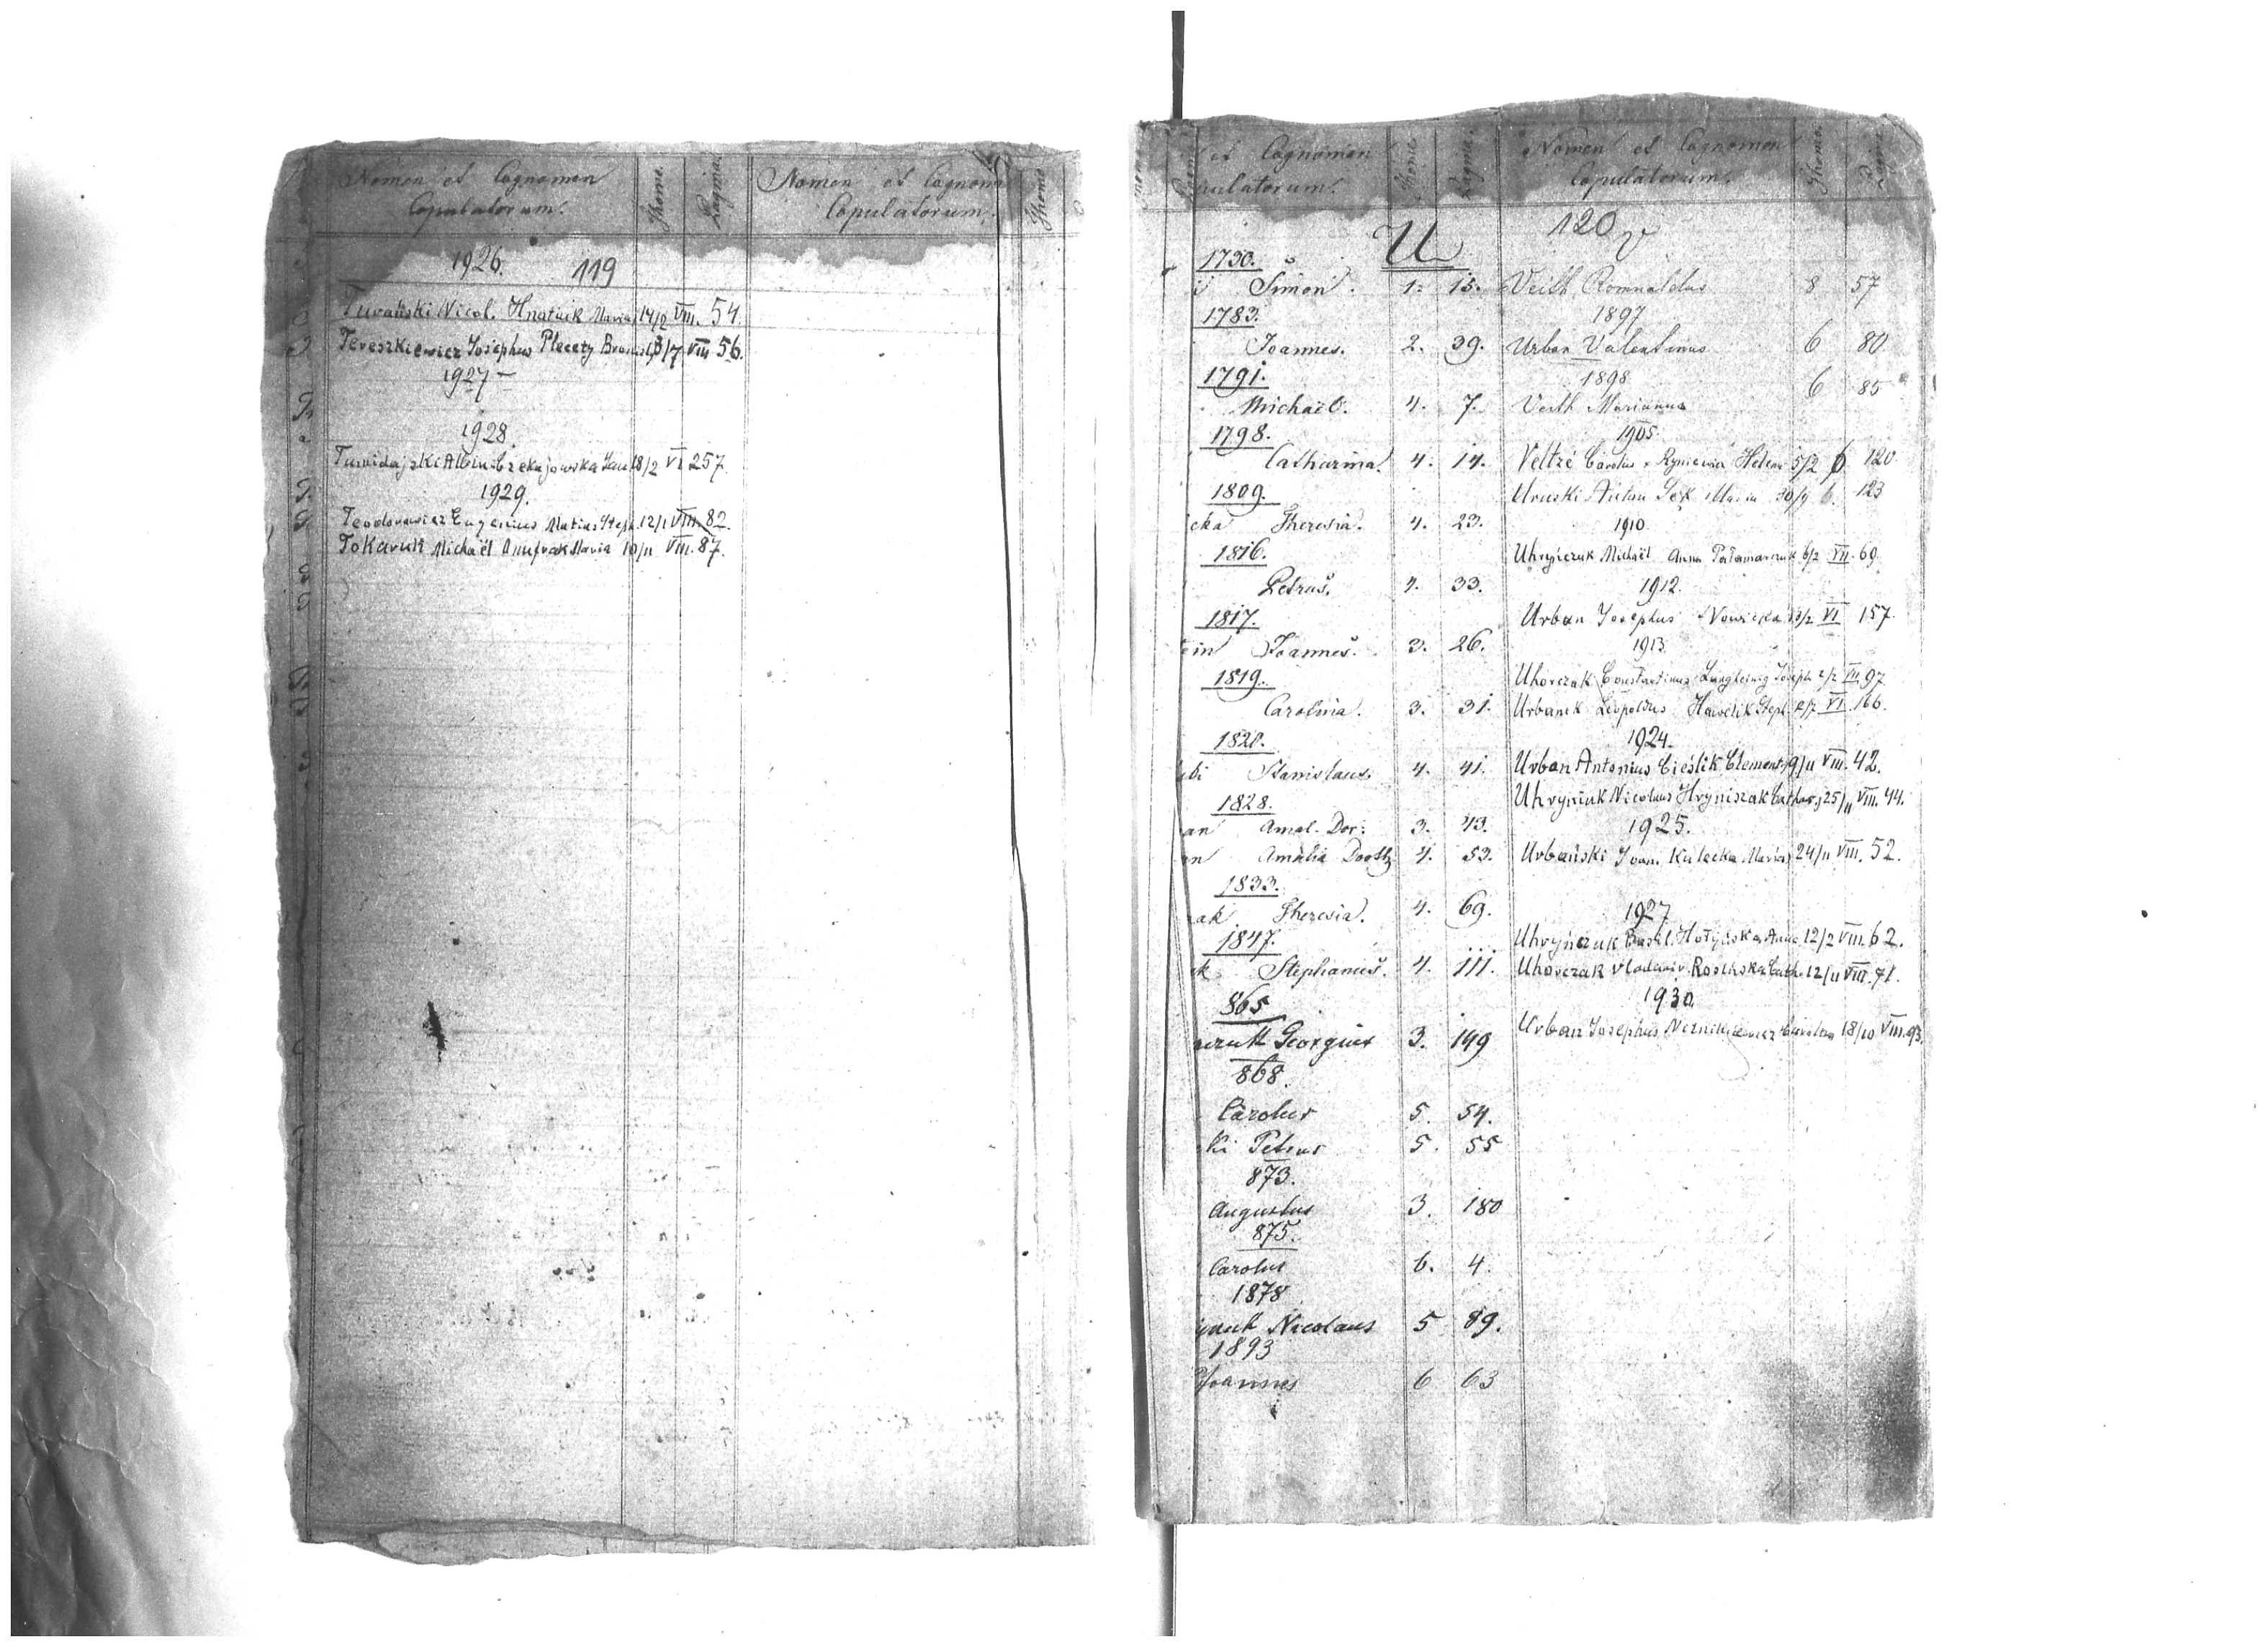 Nomen et Cognomen Copulatorum. Thoms. Pagina.
Nomen et Cognomen Copulatorum. Thoms
1926. 119
Turański Nicol. Hnatuik Maria 14/2 VIII. 54.
Tereszkiewicz Josephus Plecety 3/7 VIII 56.
1927 -
1928.
Tumidajski Albin 18/2 VI 257.
1929.
Teodorowicz Eugenius Steph. 12/1 VIII. 82.
Tokaruk Michaël Onufrak Maria 10/11 VIII. 87.
et Cognomen
ulatorum. Thoms. Pagina.
U
1730.
Simon. 1. 15.
1783.
Joannes. 2. 39.
1791.
Michaël. 4. 7.
1798.
Catharina. 4. 14.
1809.
cka Theresia. 4. 23.
1816.
Petrus. 4. 33.
1817.
in Joannes. 3. 26.
1819.
Carolina. 3. 31.
1820.
bi Stanislaus. 4. 41.
1828.
an Amal. Dor: 3. 43.
an Amalia 4. 53.
1833.
ak Theresia. 4. 69.
1847.
k Stephanus. 4. 111.
865
Georgius 3. 149
868.
Carolus 5. 54.
ki Petrus 5. 55
873.
Augustus 3. 180
875.
Carolus 6. 4.
1878
Nicolaus 5 89.
1893
Joannes 6 63
Nomen et Cognomen
Copulatorum. Thoms. Pagina.
120
V
Veith Romualdus 8 57
1897
Urban Valentinus 6 80
1898
Veith Marianus 6 85
1905.
Veltzé Carolus Helena 5/2 6 120
Uruski Anton 6. 123
1910.
Uhryńczuk Michaël Anna Pałamarczuk 6/2 VII. 69.
1912.
Urban Josephus Nowicka VI 157.
1913.
Uhorczak Constantinus Joseph 2/2 VII. 97
Urbanek Leopoldus Hawlik Steph. VI. 166.
1924.
Urban Antonius Cieślik Clement. 9/11 VIII. 42.
Uhryniuk Nicolaus Hryniszak Cathar. 25/11 VIII. 44.
1925.
Urbański Joan. Kulecka Maria 24/11 VIII. 52.
1927
Uhryńczuk Basil. Hołyńska Anna 12/2 VIII. 62.
Uhorczak Vladimir. Cath. 12/11 VIII. 71.
1930.
Urban Josephus Carolina 18/10 VIII. 93.